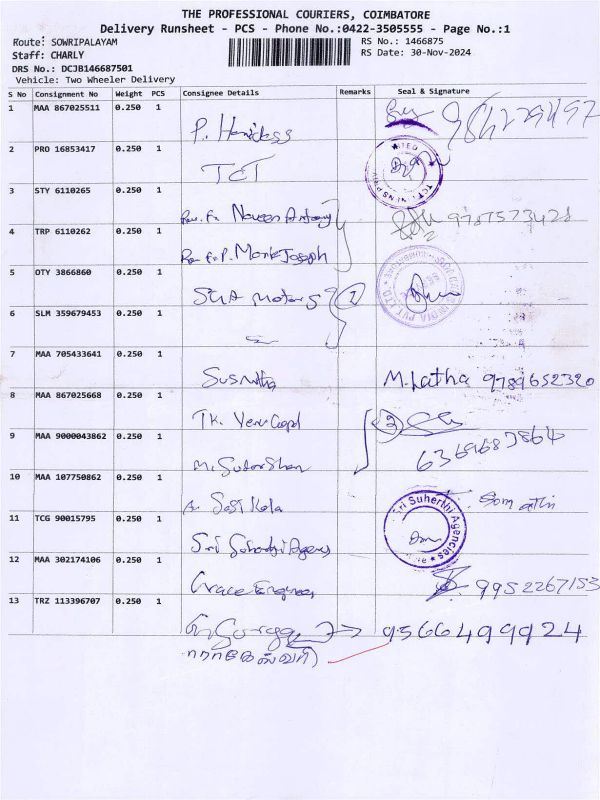 THE PROFESSIONAL COURIERS, COIMBATORE
Delivery Runsheet - PCS - Phone No.:0422-3505555 - Page No.:1
Route: SOWRIPALAYAM RS No.: 1466875
Staff: CHARLY RS Date: 30-Nov-2024
DRS No.: DCJB146687501
Vehicle: Two Wheeler Delivery
S No Consignment No Weight PCS Consignee Details Remarks Seal & Signature
1 MAA 867025511 0.250 1
2 PRO 16853417 0.250 1 TCT
3 STY 6110265 0.250 1 Rev. Fr. Naveen Antony
4 TRP 6110262 0.250 1 Rev Fr. P. Maria Joseph
5 OTY 3866860 0.250 1 Motors 2
6 SLM 359679453 0.250 1
7 MAA 705433641 0.250 1 Susmitha M. Latha 9789652320
8 MAA 867025668 0.250 1 T.K. Venu Gopal 3
9 MAA 9000043862 0.250 1 M. Sudarshan
10 MAA 107750862 0.250 1 A. Sasi Kala
11 TCG 90015795 0.250 1 Sri Suherthi Agencies Sri Suherthi Agencies
12 MAA 302174106 0.250 1 Grace Engineers 9952267153
13 TRZ 113396707 0.250 1 9566499924